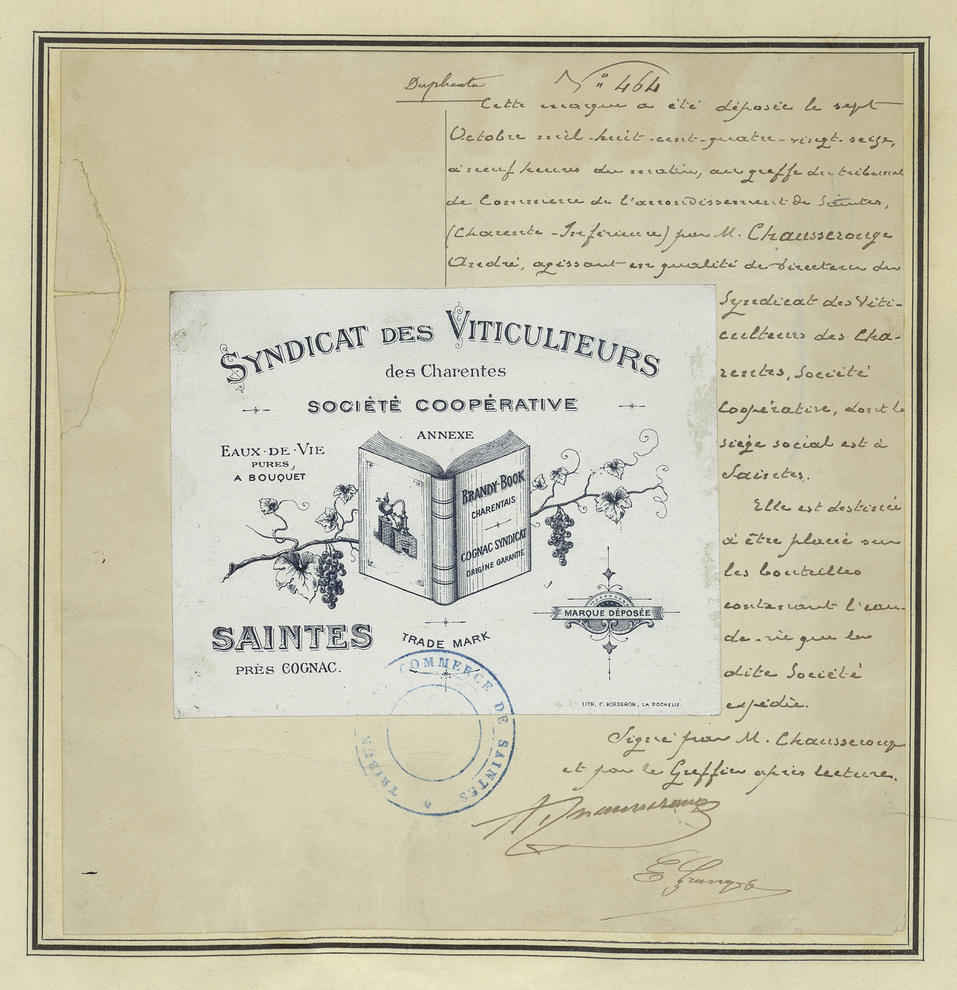 Duplicata
N° 464
Cette marque a été déposée le sept
Octobre mil-huit-cent-quatre-vingt-seize,
à neuf heures du matin, au greffe du tribunal
de Commerce de l'arrondissement de Saintes,
(Charente-Inférieure) par M. Chausserouge
André, agissant en qualité de Directeur du
Syndicat des Viti-
culteurs des Cha-
rentes, Société
Coopérative, dont le
siège social est à
Saintes.
Elle est destinée
à être placée sur
les bouteilles
contenant l'eau-
de-vie que la
dite Société
expédie.
Signé par M. Chausserouge
et par le Greffier après lecture.
SYNDICAT DES VITICULTEURS
des Charentes
SOCIÉTÉ COOPÉRATIVE
ANNEXE
EAUX-DE-VIE
PURES,
A BOUQUET
BRANDY-BOOK
CHARENTAIS
COGNAC SYNDICAT
ORIGINE GARANTIE
MARQUE DÉPOSÉE
SAINTES
PRÈS COGNAC.
TRADE MARK
LITH. E. BORSERON, LA ROCHELLE.
TRIBUN COMMERCE DE SAINTES